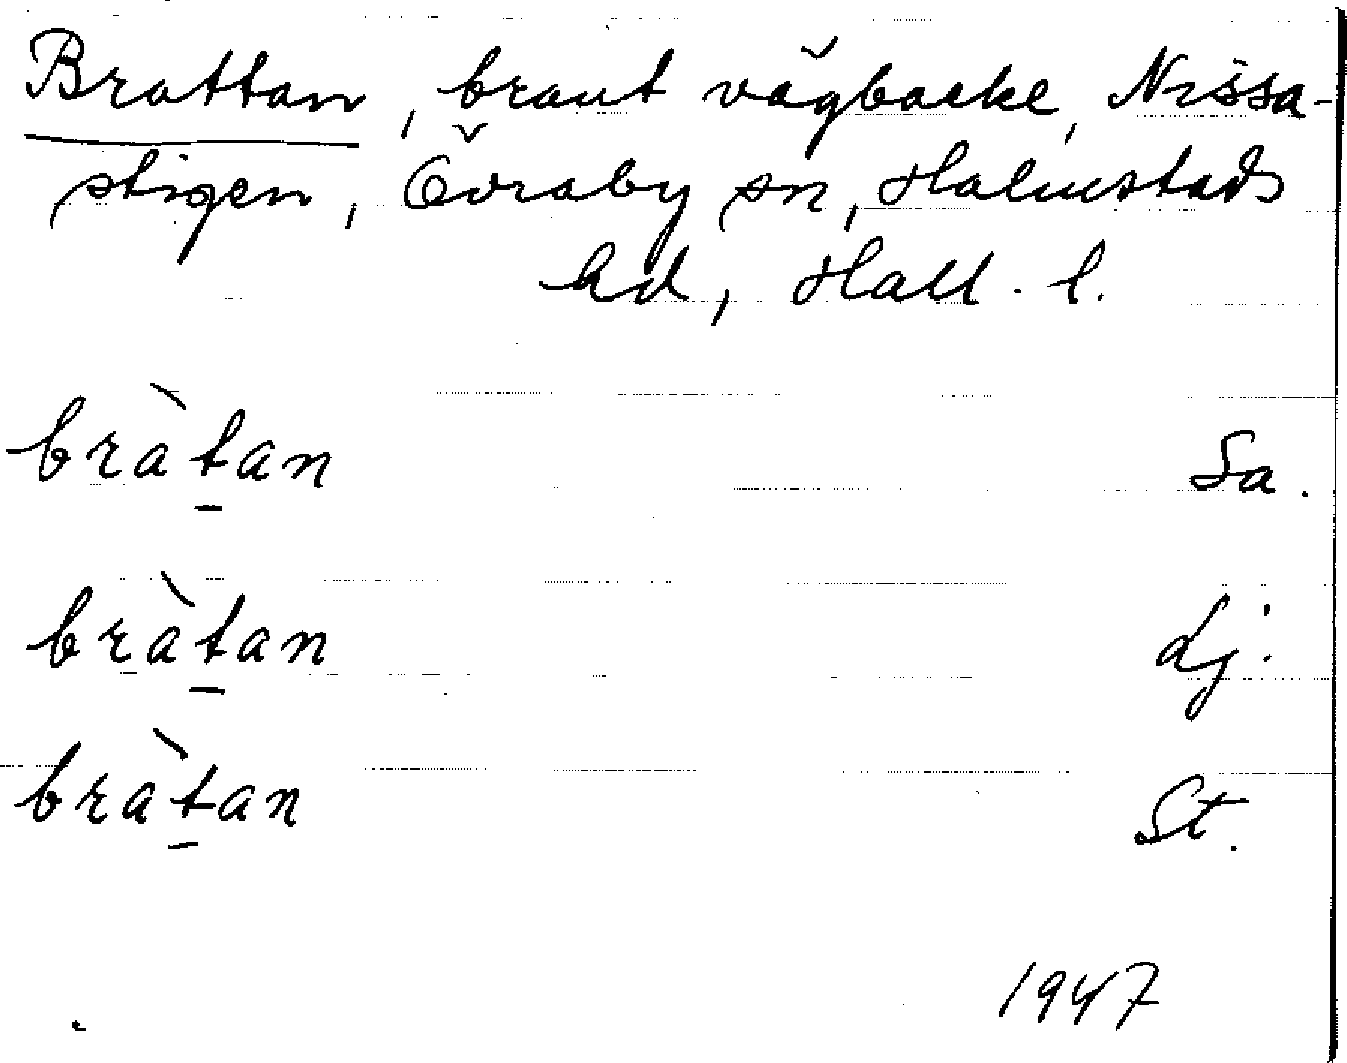 Brattan, brant vägbacke, Nissa-
stigen, Övraby sn, Halmstads
hd, Hall. l.
bràt̲an Sa.
bràt̲an Lj.
bràt̲an St.
1947